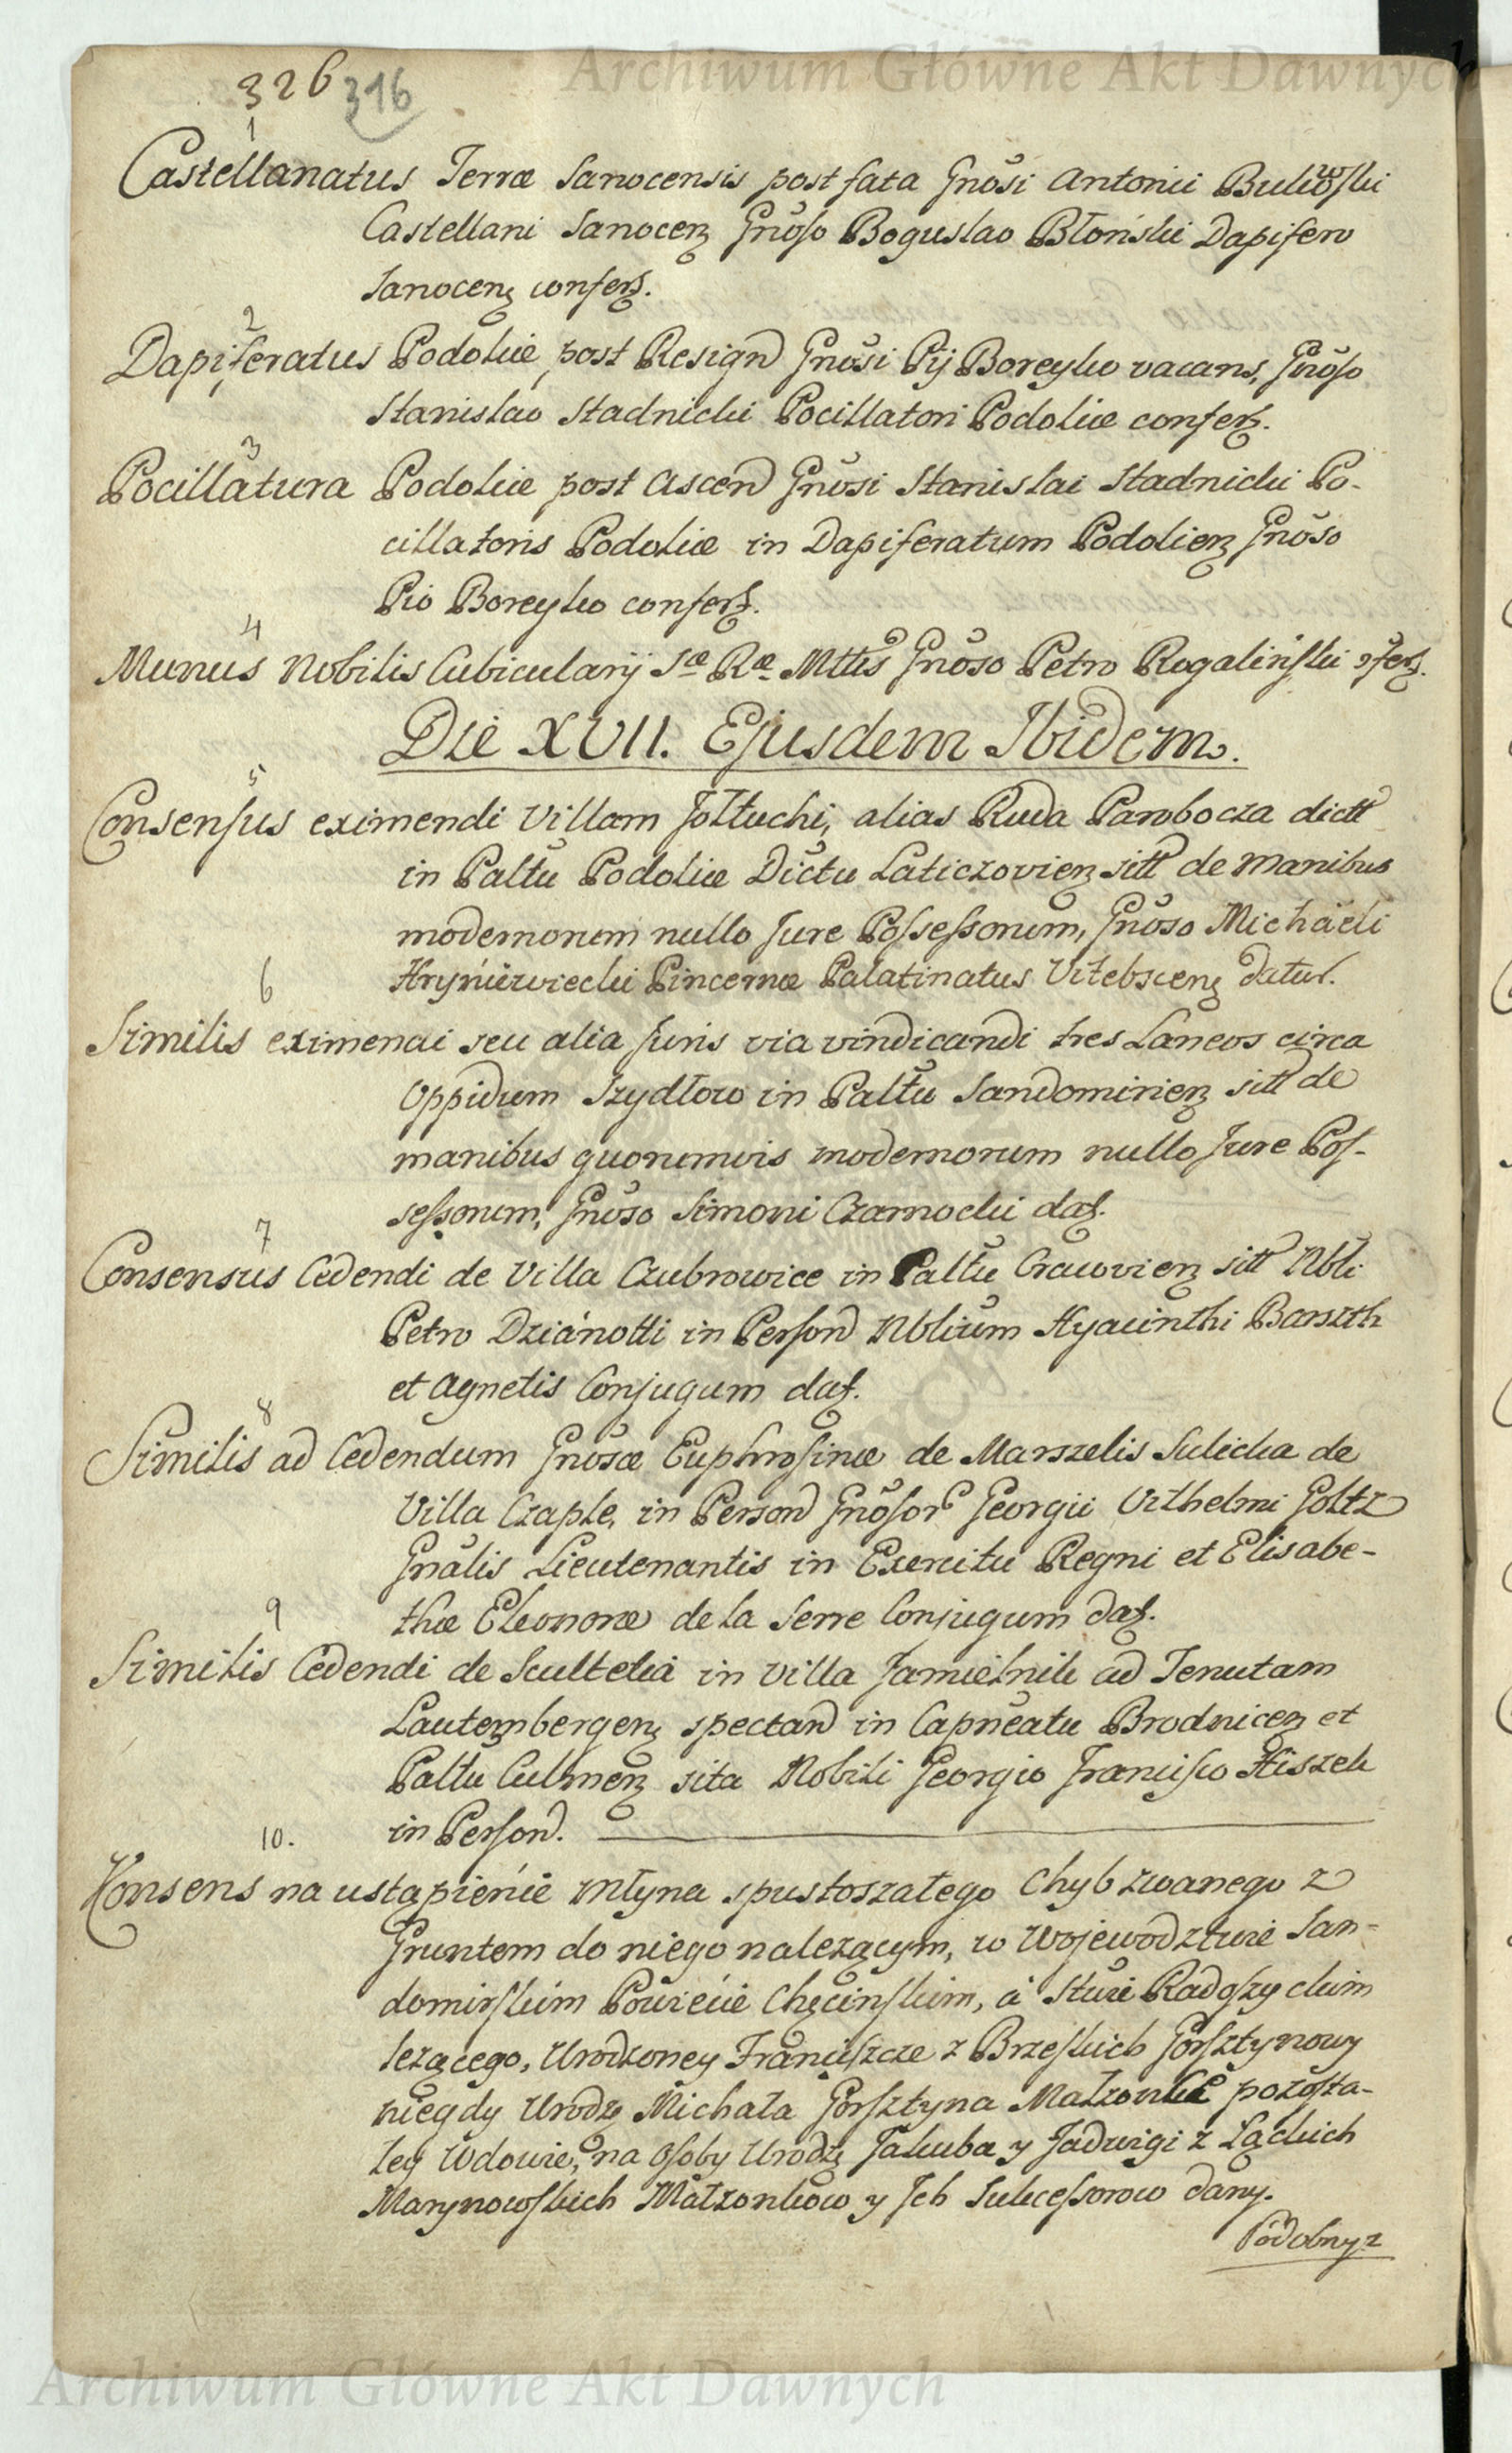 Archiwum Główne Akt Dawnych
326 316
1
Castellanatus Terræ Sanocensis post fata Gnosi Antonii Bukowski
Castellani Sanocen Gnoso Boguslao Błoński Dapifero
Sanocen confer.
2
Dapiferatus Podoliæ, post Resign Gnosi Pij Boreyko vacans, Gnoso
Stanislao Stadnicki Pocillatori Podoliæ confer.
3
Pocillatura Podoliæ post Ascen Gnosi Stanislai Stadnicki Po-
cillatoris Podoliæ in Dapiferatum Podolien Gnoso
Pio Boreyko confer.
4
Munus Nobilis Cubicularij Sæ Ræ Mttis Gnoso Petro Rogaliński confer.
Die XVII. Ejusdem Ibidem.
5
Consensus eximendi Villam Jołtuchi, alias Ruda Parobocza dictt
in Palttu Podoliæ Dictu Laticzovien sitt de manibus
modernorum nullo Jure Possessorum, Gnoso Michaeli
Hryniewiecki Pincernæ Palatinatus Vitebscen datur.
6
Similis eximendi seu alia Juris via vindicandi tres Laneos circa
Oppidum Szydłow in Palttu Sandomirien sitt de
manibus quorumvis modernorum nullo Jure Pos-
sessorum, Gnoso Simoni Czarnocki dat.
7
Consensus Cedendi de Villa Czubrowice in Palttu Cracovien sitt Nbli
Petro Dzianotti in Person Nblium Hyacinthi Barszth
et Agnetis Conjugum dat.
8
Similis ad Cedendum Gnosæ Euphrosinæ de Marszelis Sulicka de
Villa Czaple, in Person Gnosor Georgii Vilhelmi Goltz
Gnalis Lieutenantis in Exercitu Regni et Elisabe-
thæ Eleonoræ de la Serre Conjugum dat.
9
Similis Cedendi de Scultetia in Villa Jamielnik ad Tenutam
Lautembergen spectan in Capneatu Brodnicen et
Palttu Culmen sita Nobili Georgio Francisco Hiszek
in Person.
10.
Konsens na ustąpienie Młyna spustoszałego Chyb zwanego z
Gruntem do niego nalezącym, w Wojewodztwie San-
domirskim Powiecie Chęcinskim, a Sttwie Radoszyckim
lezącego, Urodzoney Franciszce z Brzeskich Gorsztynowy
niegdy Urodz Michała Gorsztyna Małzonke pozosta-
łey Wdowie, na Osoby Urodz Jakuba y Jadwigi z Łąckich
Marynowskich Małzonkow y Jch Sukcessorow dany.
Podobnyz
Archiwum Główne Akt Dawnych